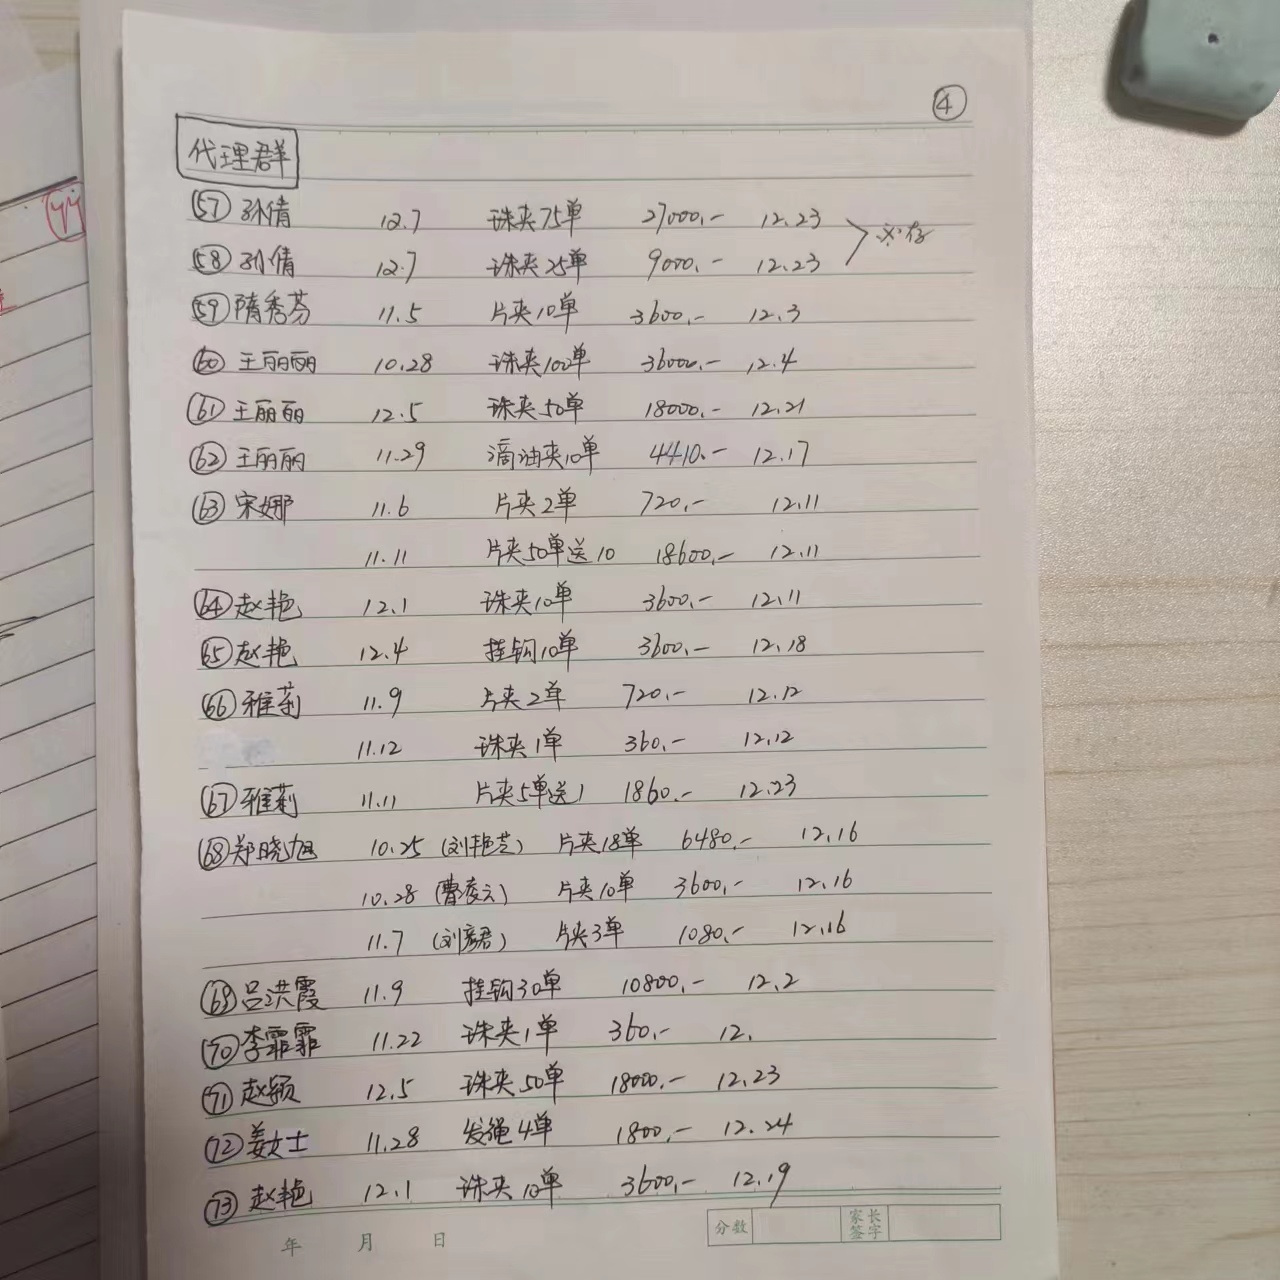 ④
代理群
57 孙倩 12.7 珠夹75单 27000.- 12.23
58 孙倩 12.7 珠夹25单 9000.- 12.23
59 隋秀芬 11.5 片夹10单 3600.- 12.3
60 王丽丽 10.28 珠夹100单 36000.- 12.4
61 王丽丽 12.5 珠夹50单 18000.- 12.21
62 王丽丽 11.29 滴油夹10单 4410.- 12.17
63 宋娜 11.6 片夹2单 720.- 12.11
11.11 片夹50单送10 18600.- 12.11
64 赵艳 12.1 珠夹10单 3600.- 12.11
65 赵艳 12.4 挂钩10单 3600.- 12.18
66 雅莉 11.9 片夹2单 720.- 12.12
11.12 珠夹1单 360.- 12.12
67 雅莉 11.11 片夹5单送1 1860.- 12.23
68 郑晓旭 10.25 (刘艳芝) 片夹18单 6480.- 12.16
10.28 (曹凌云) 片夹10单 3600.- 12.16
11.7 (刘彦君) 片夹3单 1080.- 12.16
69 吕洪霞 11.9 挂钩30单 10800.- 12.2
70 李霏霏 11.22 珠夹1单 360.- 12.
71 赵颖 12.5 珠夹50单 18000.- 12.23
72 姜女士 11.28 发绳4单 1800.- 12.24
73 赵艳 12.1 珠夹10单 3600.- 12.19
年 月 日 分数 家长签字